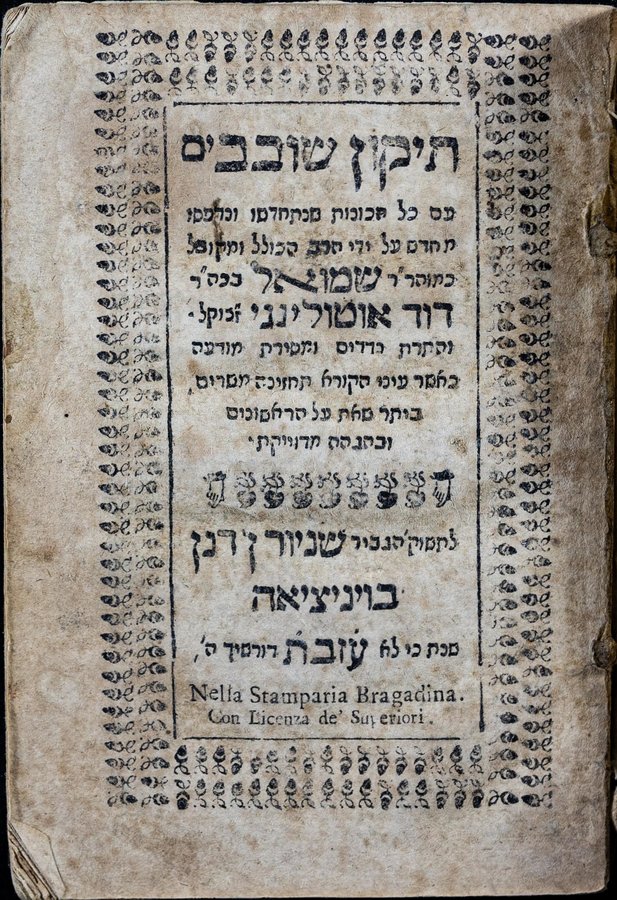 תיקון שובבים
עם כל הכונות שנתחדשו ונדפסו
מחדש על ידי הרב הכולל ומקובל
כמוהר״ר שמואל בכה״ר
דוד אוטולינגי זצוקל׳
והתרת נדרים ומסירת מודעה
כאשר עיני הקורא תחזינה משרים,
ביתר שאת על הראשונים
ובהגהה מדוייקת׳
לתשוק׳ הגביר שניור ן׳ דנן
בויניציאה
שנת כי לא עזבת דורשיך ה׳,
Nella Stamparia Bragadina.
Con Licenza de' Superiori.